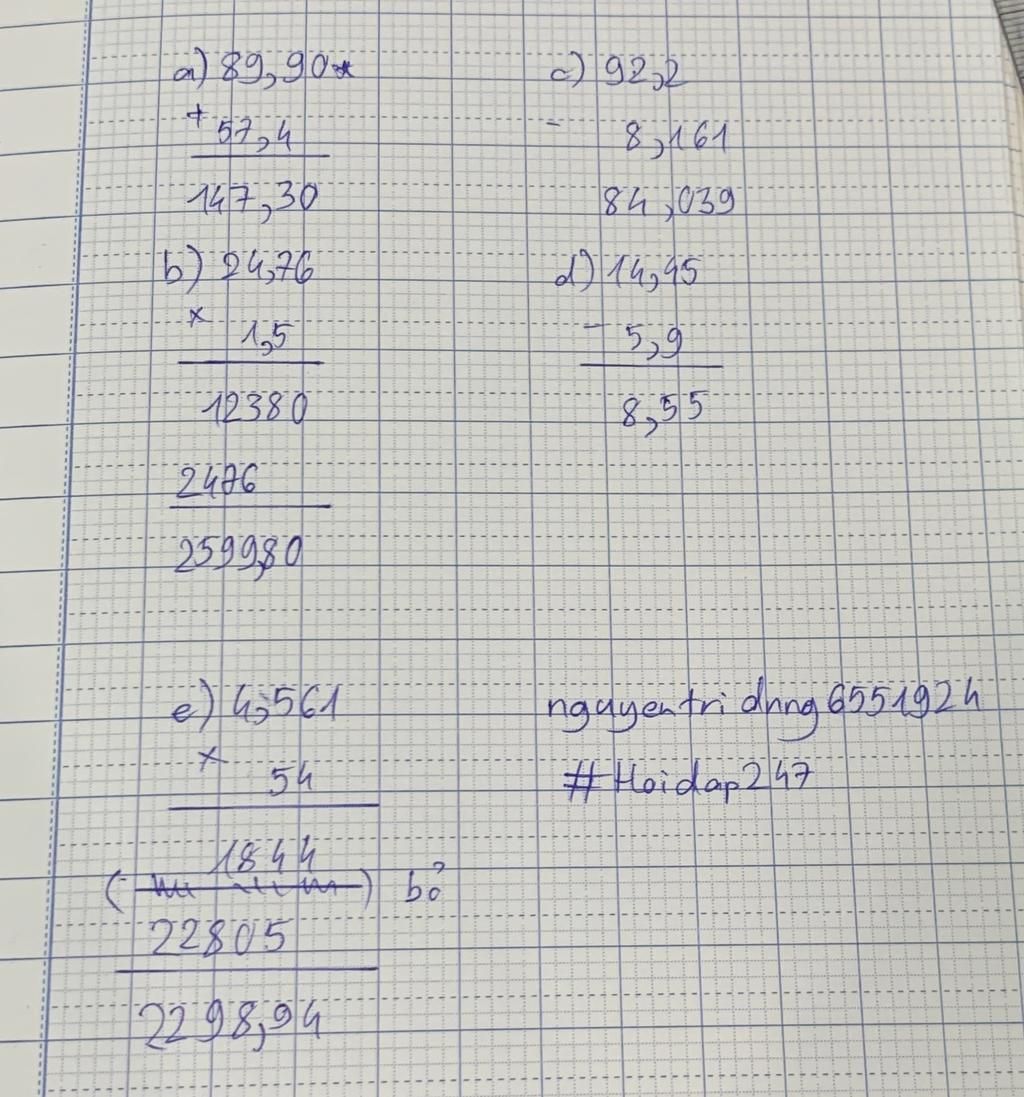 a) 89,90
+
57,4
147,30
b) 24,76
×
1,5
12380
2476
259980
c) 92,2
-
8,161
84,039
d) 14,45
-
5,9
8,55
e) 4,561
×
54
1844
bỏ
22805
2298,94
nguyentridnng6551924
#Hoidap247